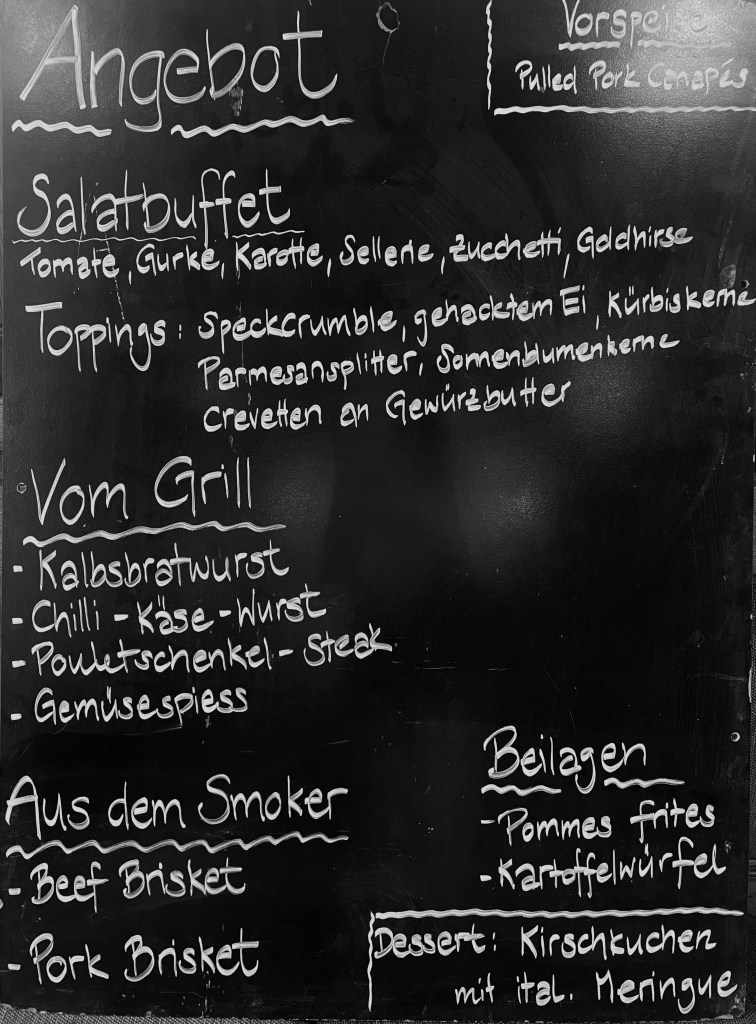 Angebot
Vorspeise
Pulled Pork Canapés
Salatbuffet
Tomate, Gurke, Karotte, Sellerie, Zucchetti, Goldhirse
Toppings: Speckcrumble, gehacktem Ei, Kürbiskerne
Parmesansplitter, Sonnenblumenkerne
Crevetten an Gewürzbutter
Vom Grill
- Kalbsbratwurst
- Chilli-Käse-Wurst
- Pouletschenkel-Steak
- Gemüsespiess
Aus dem Smoker
- Beef Brisket
- Pork Brisket
Beilagen
- Pommes frites
- Kartoffelwürfel
Dessert: Kirschkuchen
mit ital. Meringue